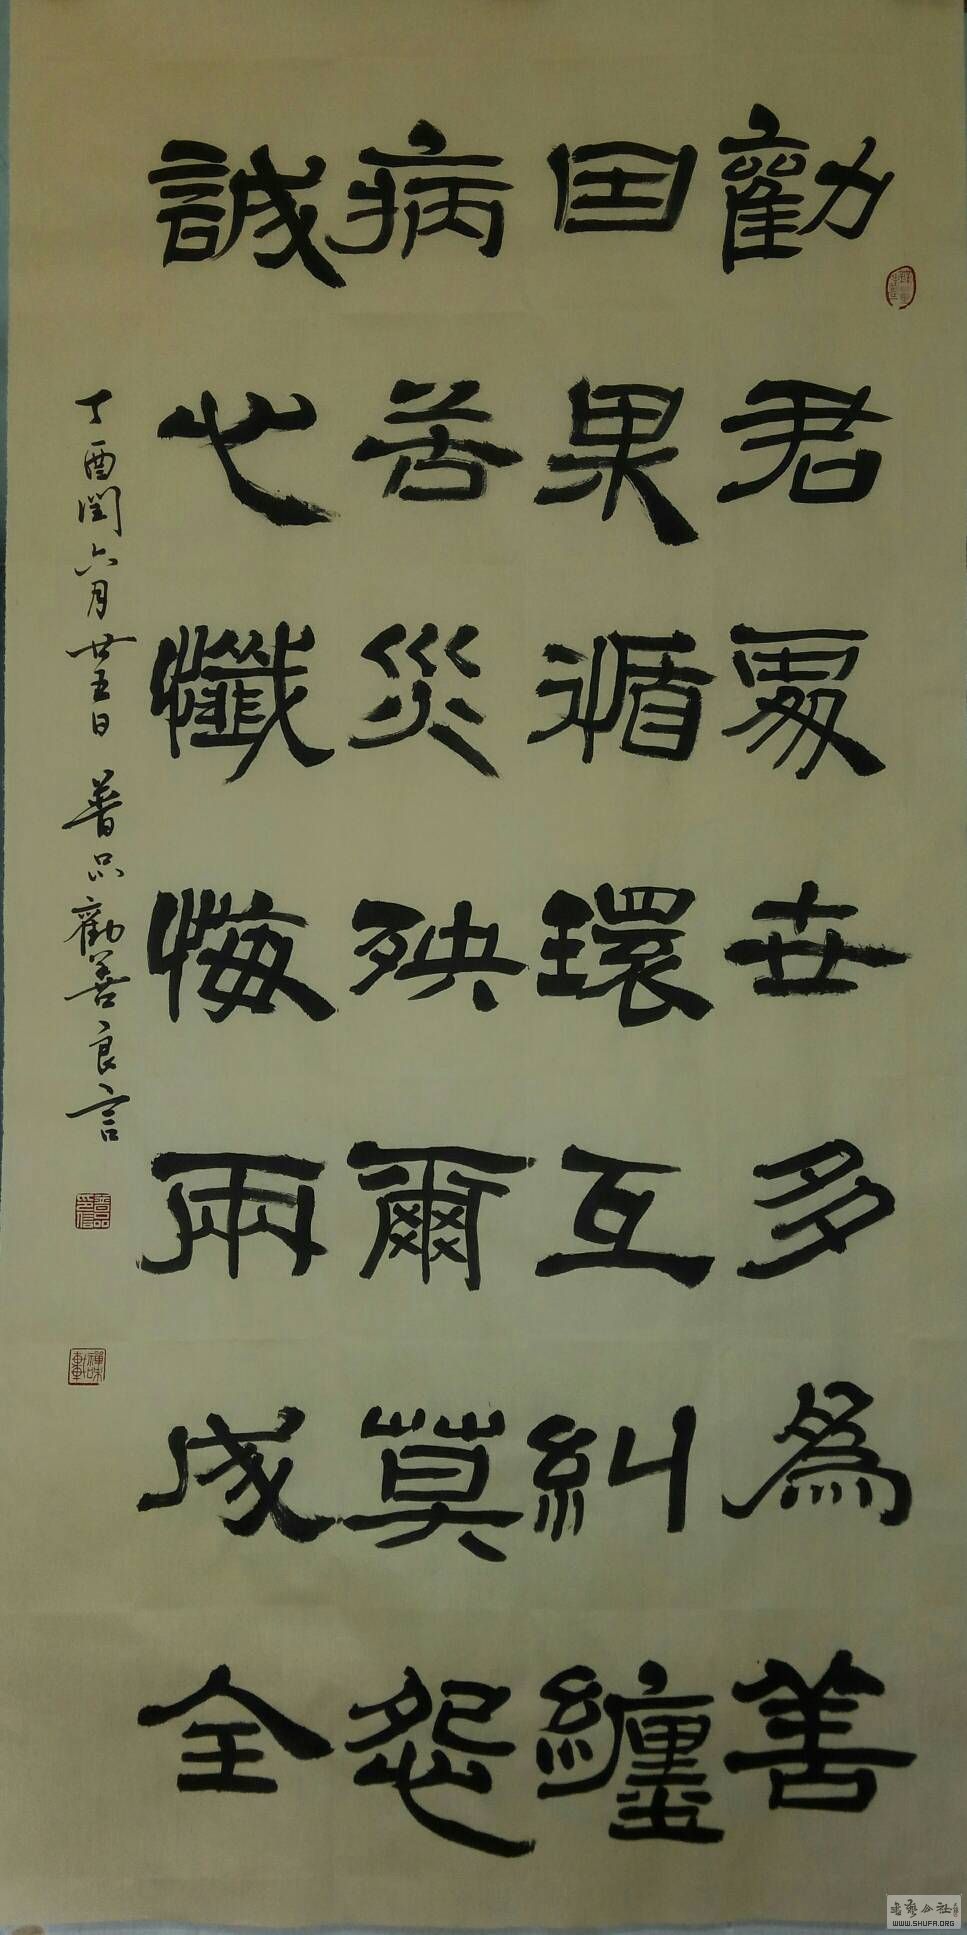 勸君處世多為善
因果循環互糾纏
病苦災殃爾莫怨
誠心懺悔兩成全
丁酉閏六月廿五日 普品勸善良言
普品之信
禪味軒
書藝公社
WWW.SHUFA.ORG